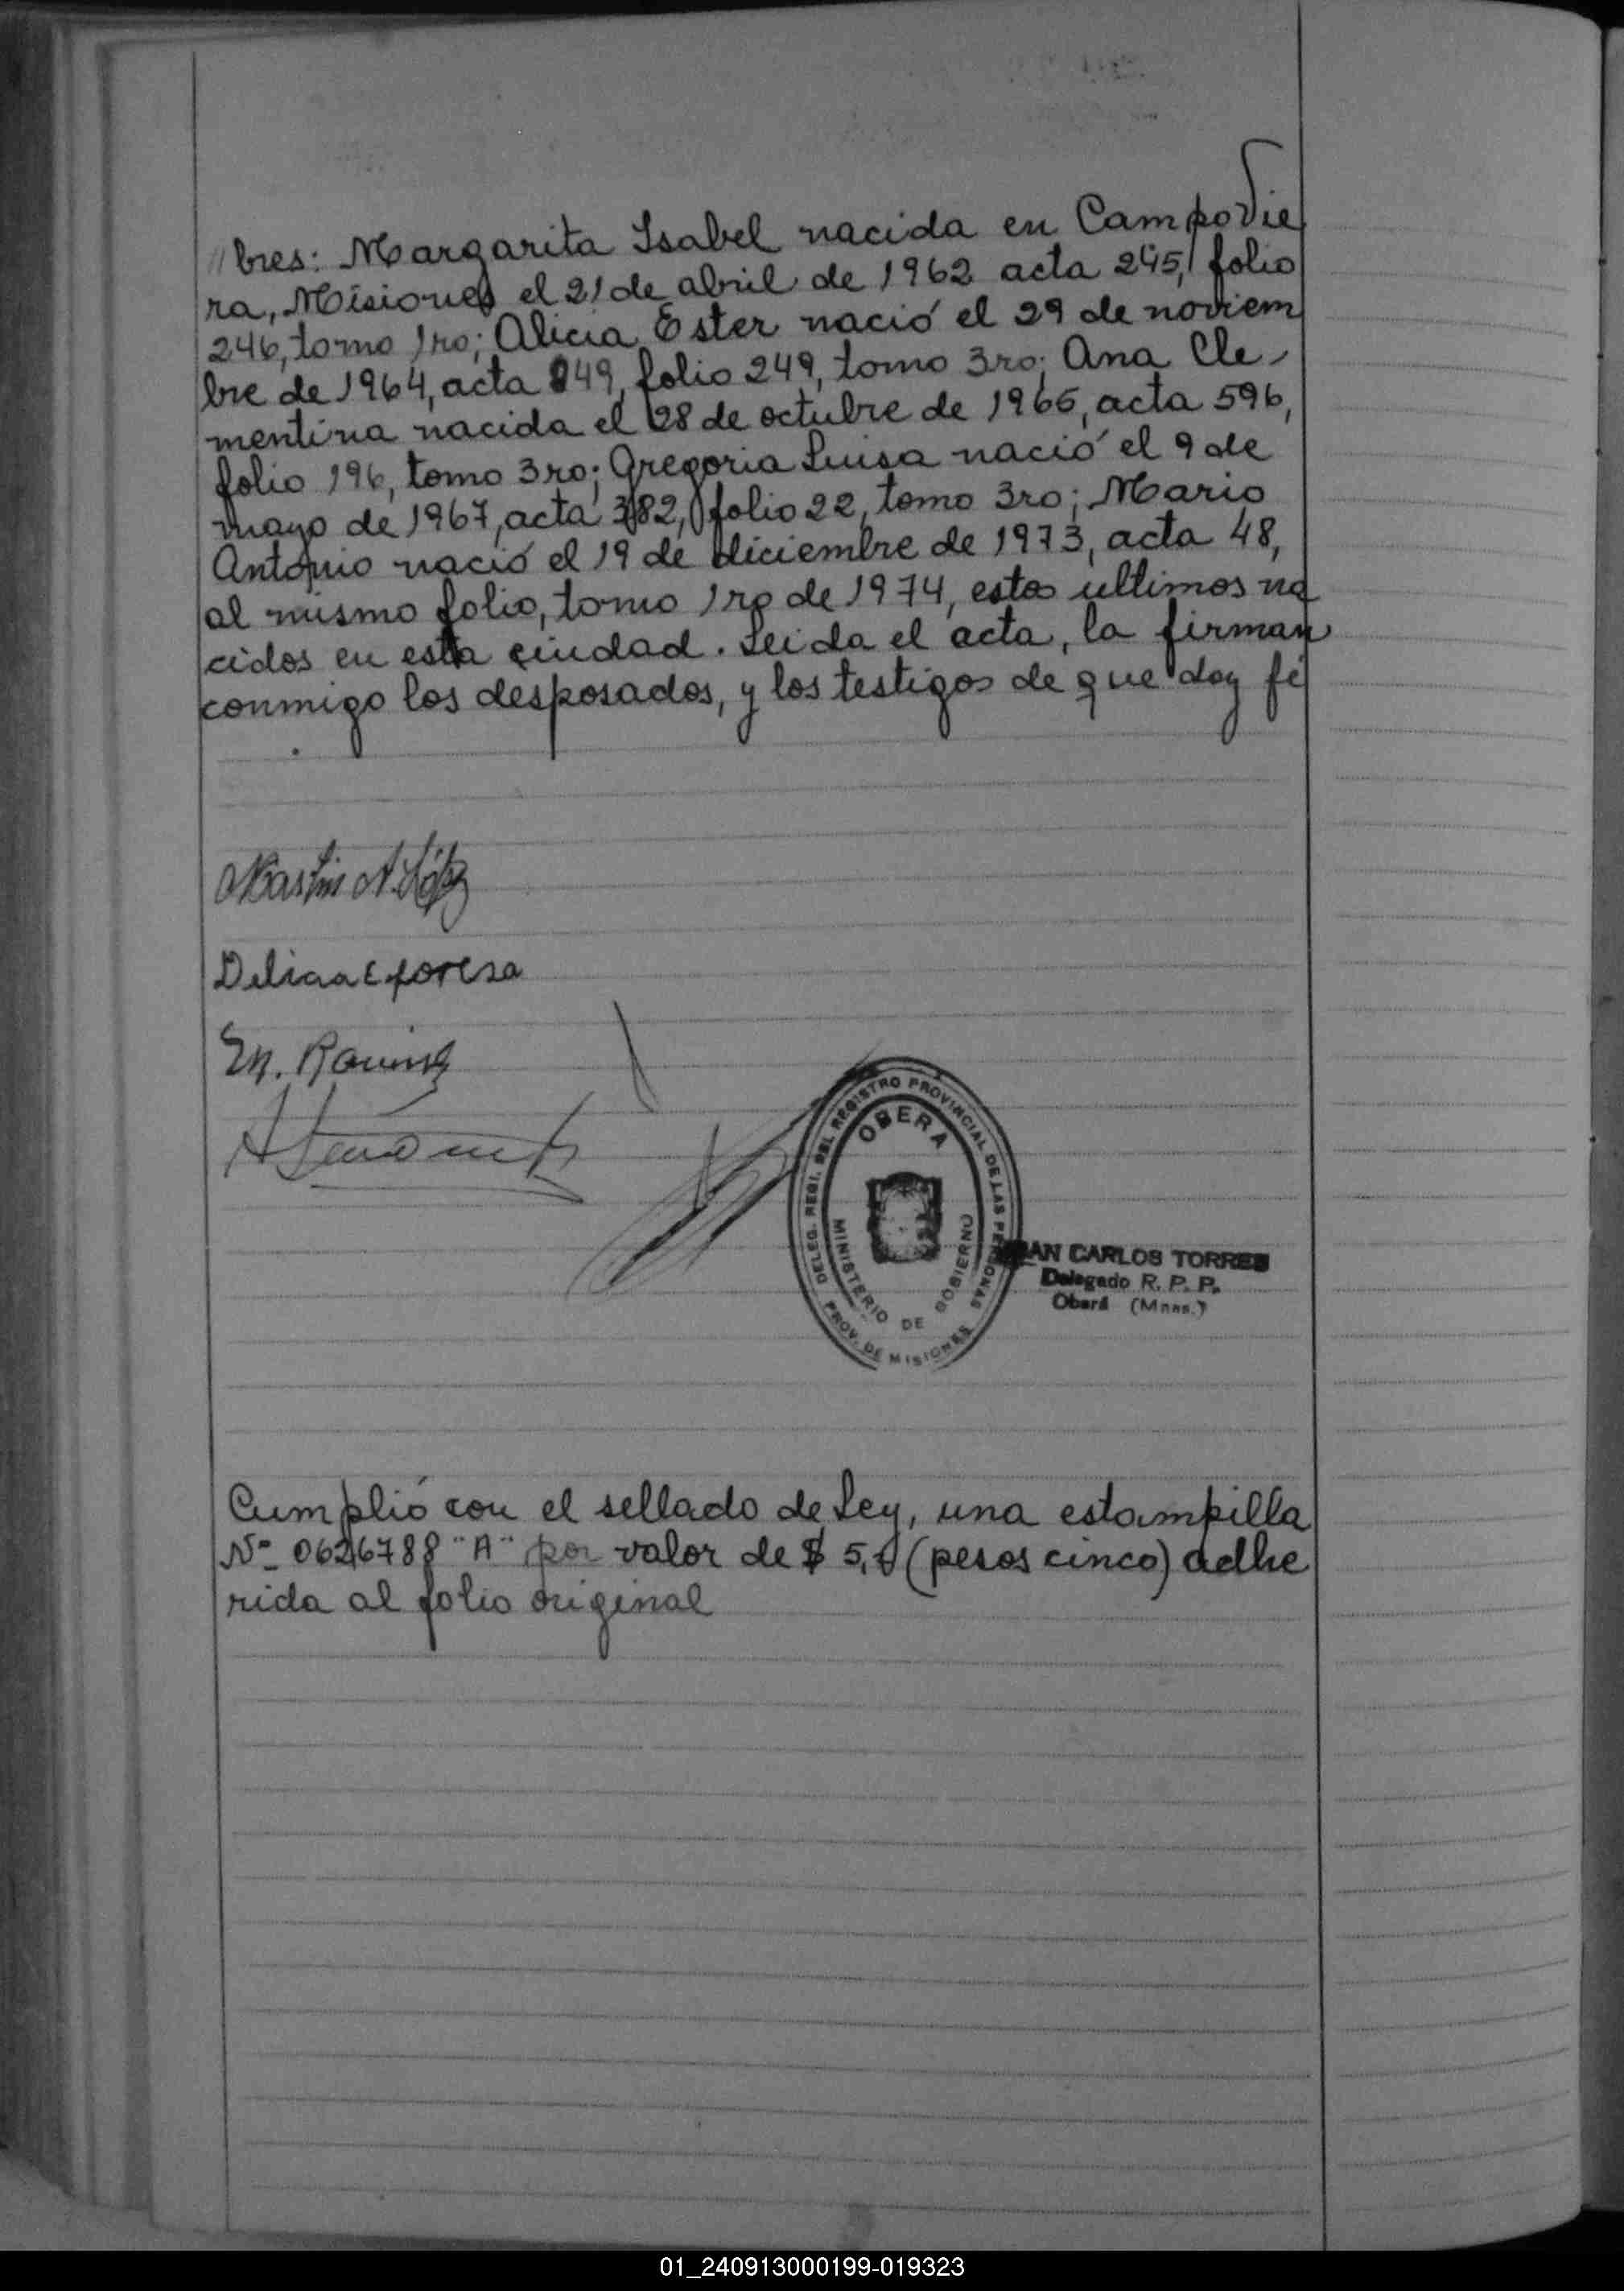 //bres: Margarita Isabel nacida en Campo Vie
ra, Misiones el 21 de abril de 1962 acta 245, folio
246, tomo 1ro; Alicia Ester nació el 29 de noviem
bre de 1964, acta 849, folio 249, tomo 3ro; Ana Cle-
mentina nacida el 28 de octubre de 1965, acta 596,
folio 196, tomo 3ro; Gregoria Luisa nació el 9 de
mayo de 1967, acta 382, folio 22, tomo 3ro; Mario
Antonio nació el 19 de diciembre de 1973, acta 48,
al mismo folio, tomo 1ro de 1974, estos ultimos na
cidos en esta ciudad. Leida el acta, la firman
conmigo los desposados, y los testigos de que doy fé
.
Martin A. López
Delia
OBERA
DELEG. REGI. DEL REGISTRO PROVINCIAL DE LAS PERSONAS
MINISTERIO DE GOBIERNO
PROV. DE MISIONES
JUAN CARLOS TORRES
Delegado R. P. P.
Oberá (Mnes.)
Cumplió con el sellado de Ley, una estampilla
Nº 0626788 "A" por valor de $ 5,- (pesos cinco) adhe
rida al folio original
01_240913000199-019323